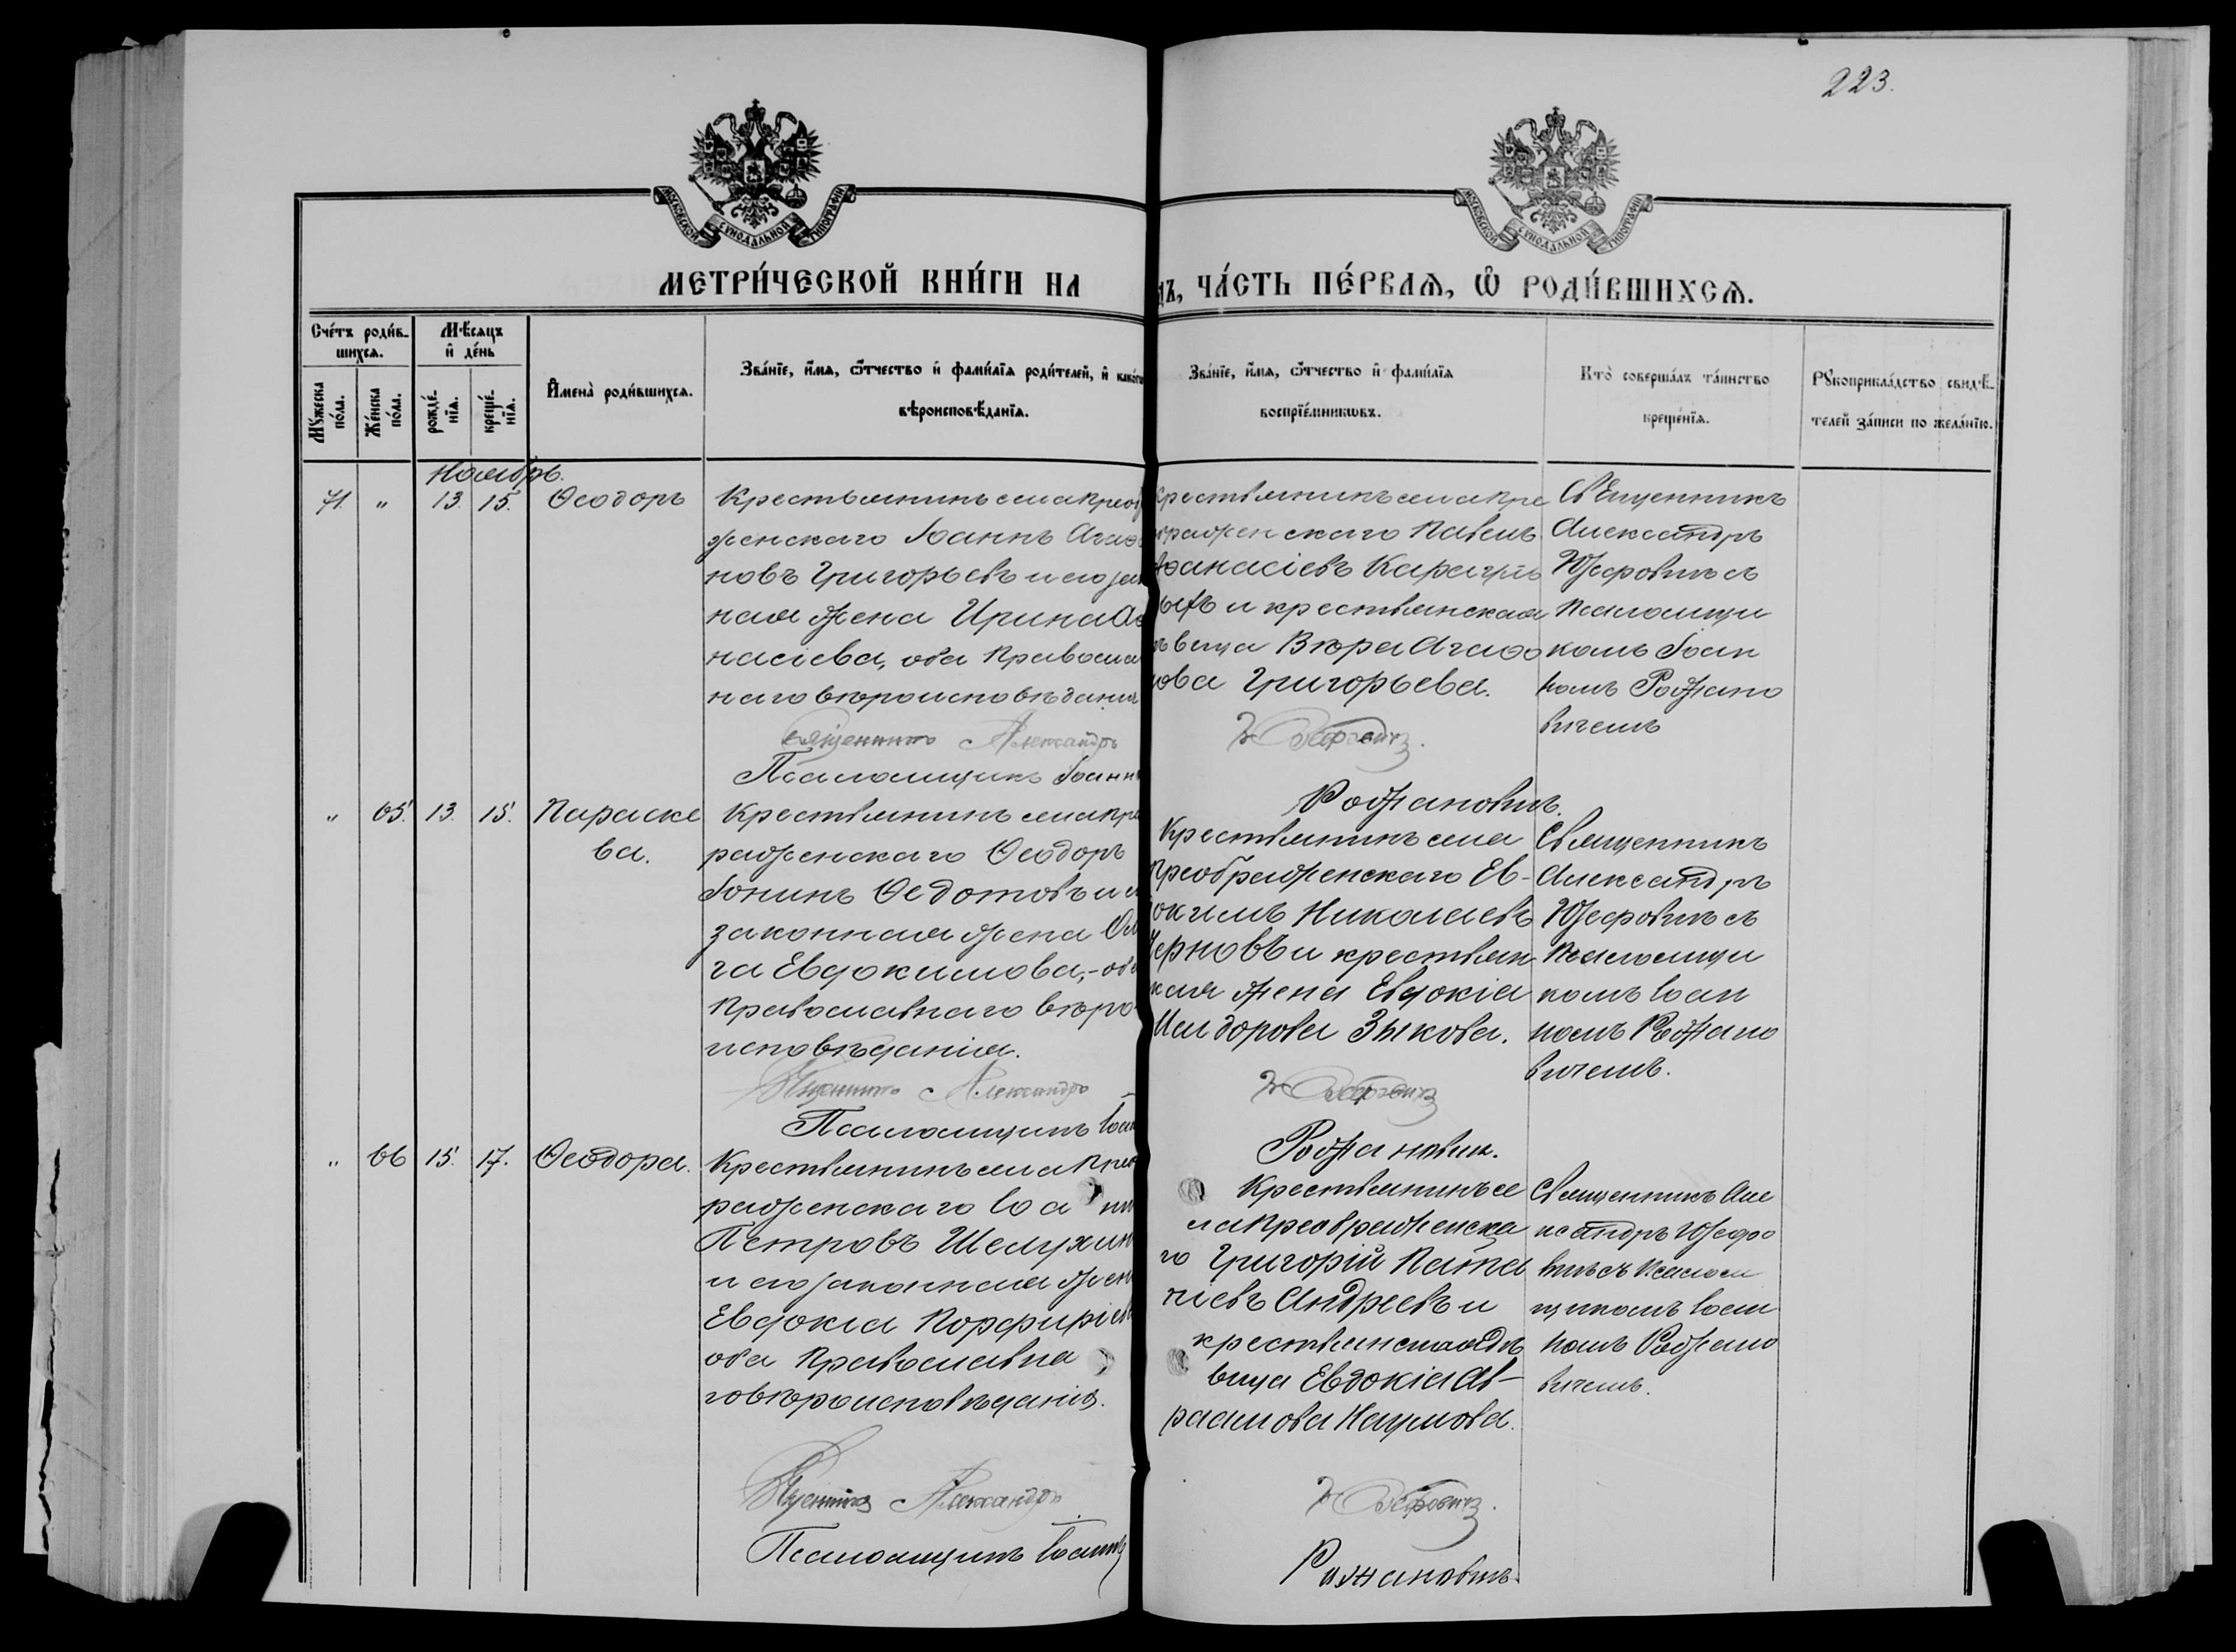 223.
МОСКОВСКОЙ СѴНОДАЛЬНОЙ ТИПОГРАФІИ
МОСКОВСКОЙ СѴНОДАЛЬНОЙ ТИПОГРАФІИ
МЕТРИ́ЧЕСКОЙ КНИ́ГИ НА
ДЪ, ЧА́СТЬ ПЕ́РВАѦ, Ѡ҆ РОДИ́ВШИХСѦ.
Сче́тъ роди́в-
шихсѧ.
Мꙋ́жеска
по́ла.
Же́нска
по́ла.
Мѣ́сѧцъ
и҆ де́нь
рожде́-
нїѧ.
креще́-
нїѧ.
И҆мена̀ роди́вшихсѧ.
Зва́нїе, и҆́мѧ, ѻ҆́тчество и҆ фами́лїѧ роди́телей, и҆ како́гѡ
вѣроисповѣ́данїѧ.
Зва́нїе, и҆́мѧ, ѻ҆́тчество и҆ фами́лїѧ
воспрїе́мникѡвъ.
Кто̀ соверша́лъ та́инство
креще́нїѧ.
Рꙋкоприкла́дство свидѣ́-
телей за́писи по жела́нїю.
Ноябрь.
71. " 13. 15. Ѳеодоръ
Крестьянинъ села Преоб
женскаго Іоаннъ Агаѳо
новъ Григорьевъ и его зак
ная жена Ирина Аѳ
насіева, оба Православ
наго вѣроисповѣданія
Священникъ Александръ
Псаломщикъ Іоаннъ
Крестьянинъ села Пре
ображенскаго Павелъ
Аѳанасіевъ
и крестьянская
дѣвица Вѣра Агаѳо
нова Григорьева.
Рожановичъ.
Священникъ
Александръ
Юзефовичъ съ
Псаломщи
комъ Іоан
номъ Рожано
вичемъ
" 65. 13. 15. Параске
ва.
Крестьянинъ села Пре
раженскаго Ѳеодоръ
Іонинъ Ѳедотовъ и е
законная жена Ол
га Евдокимова,- оба
Православнаго вѣро-
исповѣданія.
Священникъ Александръ
Псаломщикъ Іоан
Крестьянинъ села
Преображенскаго Ев-
докимъ Николаевъ
Черновъ и крестьян
ская жена Евдокія
Исидорова Зыкова.
Рожанович.
Священникъ
Александръ
Юзефовичъ съ
Псаломщи
комъ Іоан
номъ Рожано
вичемъ.
" 66 15. 17. Ѳеодора.
Крестьянинъ села Прео
раженскаго Іоанн
Петровъ Шелухин
и его законная жен
Евдокія Порфиріев
оба Православна
го вѣроисповѣданія.
Священникъ Александръ
Псаломщикъ Іоаннъ
Крестьянинъ се
ла Преображенска
го Григорій Ната
ліевъ Андреевъ и
крестьянская дѣ
вица Евдокія Ав-
раамова Наумова.
Рожановичъ.
Священникъ Але
ксандръ Юзефо
вичъ съ Псалом
щикомъ Іоан
номъ Рожано
вичемъ.